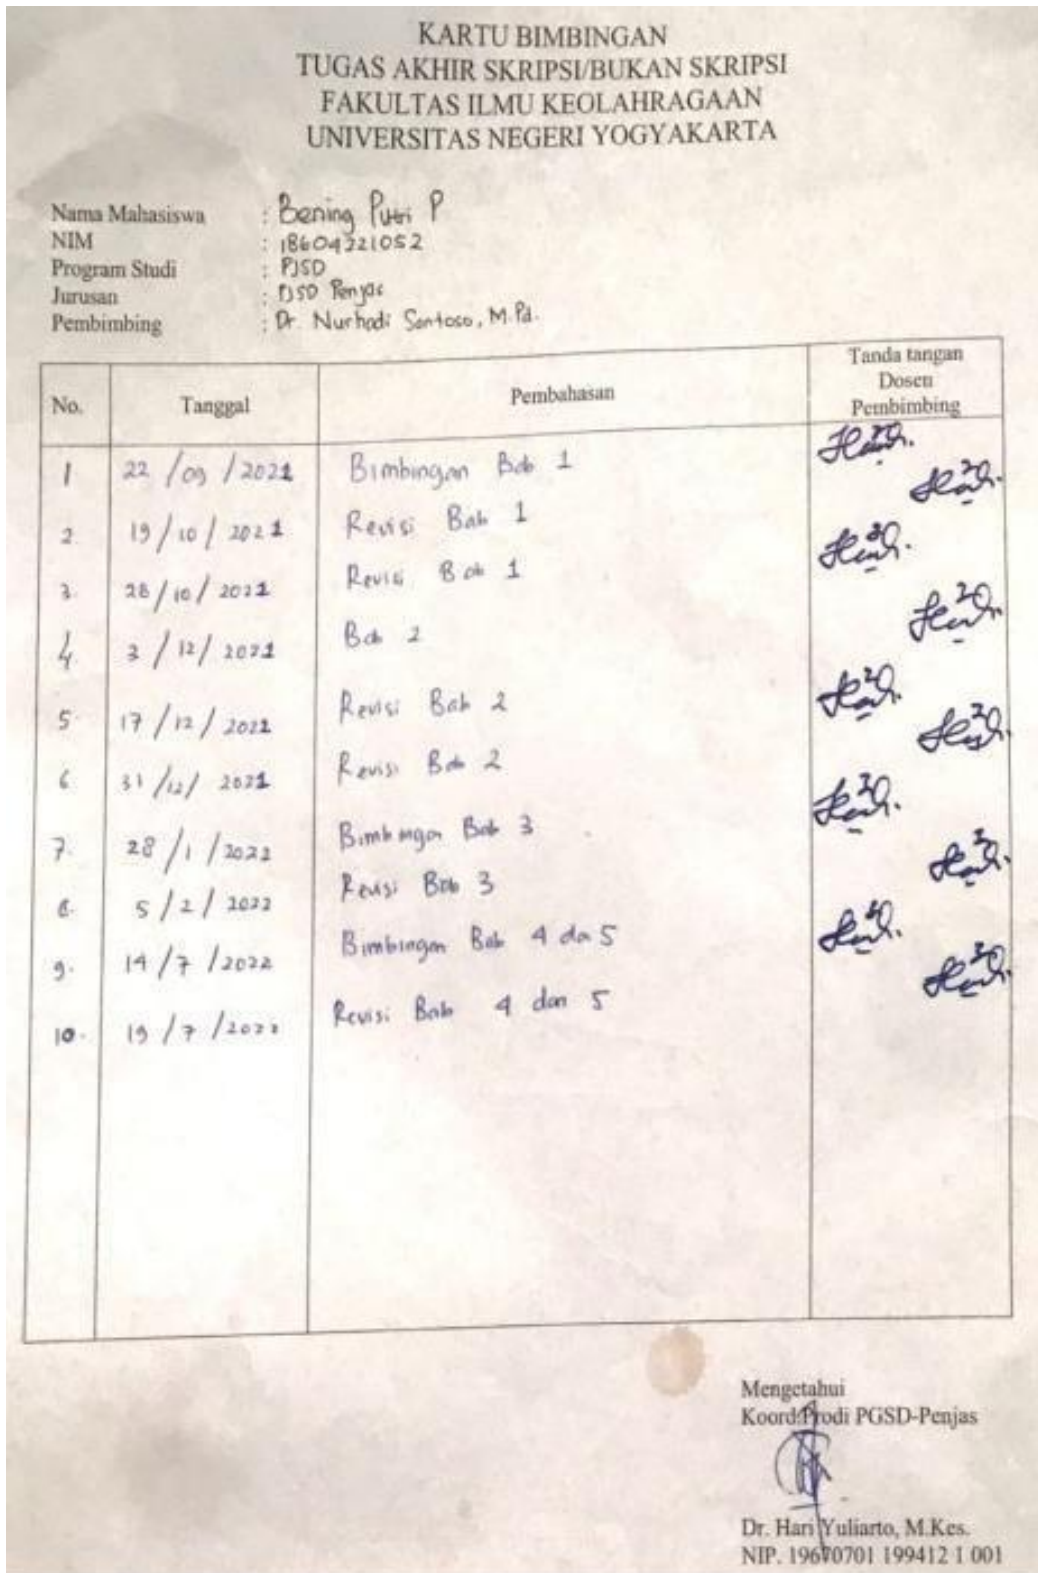 KARTU BIMBINGAN
TUGAS AKHIR SKRIPSI/BUKAN SKRIPSI
FAKULTAS ILMU KEOLAHRAGAAN
UNIVERSITAS NEGERI YOGYAKARTA
Nama Mahasiswa : Bening Putri P
NIM : 18604221052
Program Studi : PJSD
Jurusan : PJSD Penjas
Pembimbing : Dr. Nurhadi Santoso, M.Pd.
No. Tanggal Pembahasan Tanda tangan Dosen Pembimbing
1 22/09/2021 Bimbingan Bab 1
2. 19/10/2021 Revisi Bab 1
3. 28/10/2021 Revisi Bab 1
4. 3/12/2021 Bab 2
5. 17/12/2021 Revisi Bab 2
6 31/12/2021 Revisi Bab 2
7. 28/1/2022 Bimbingan Bab 3
8. 5/2/2022 Revisi Bab 3
9. 14/7/2022 Bimbingan Bab 4 da 5
10. 19/7/2022 Revisi Bab 4 dan 5
Mengetahui
Koord.Prodi PGSD-Penjas
Dr. Hari Yuliarto, M.Kes.
NIP. 19670701 199412 1 001